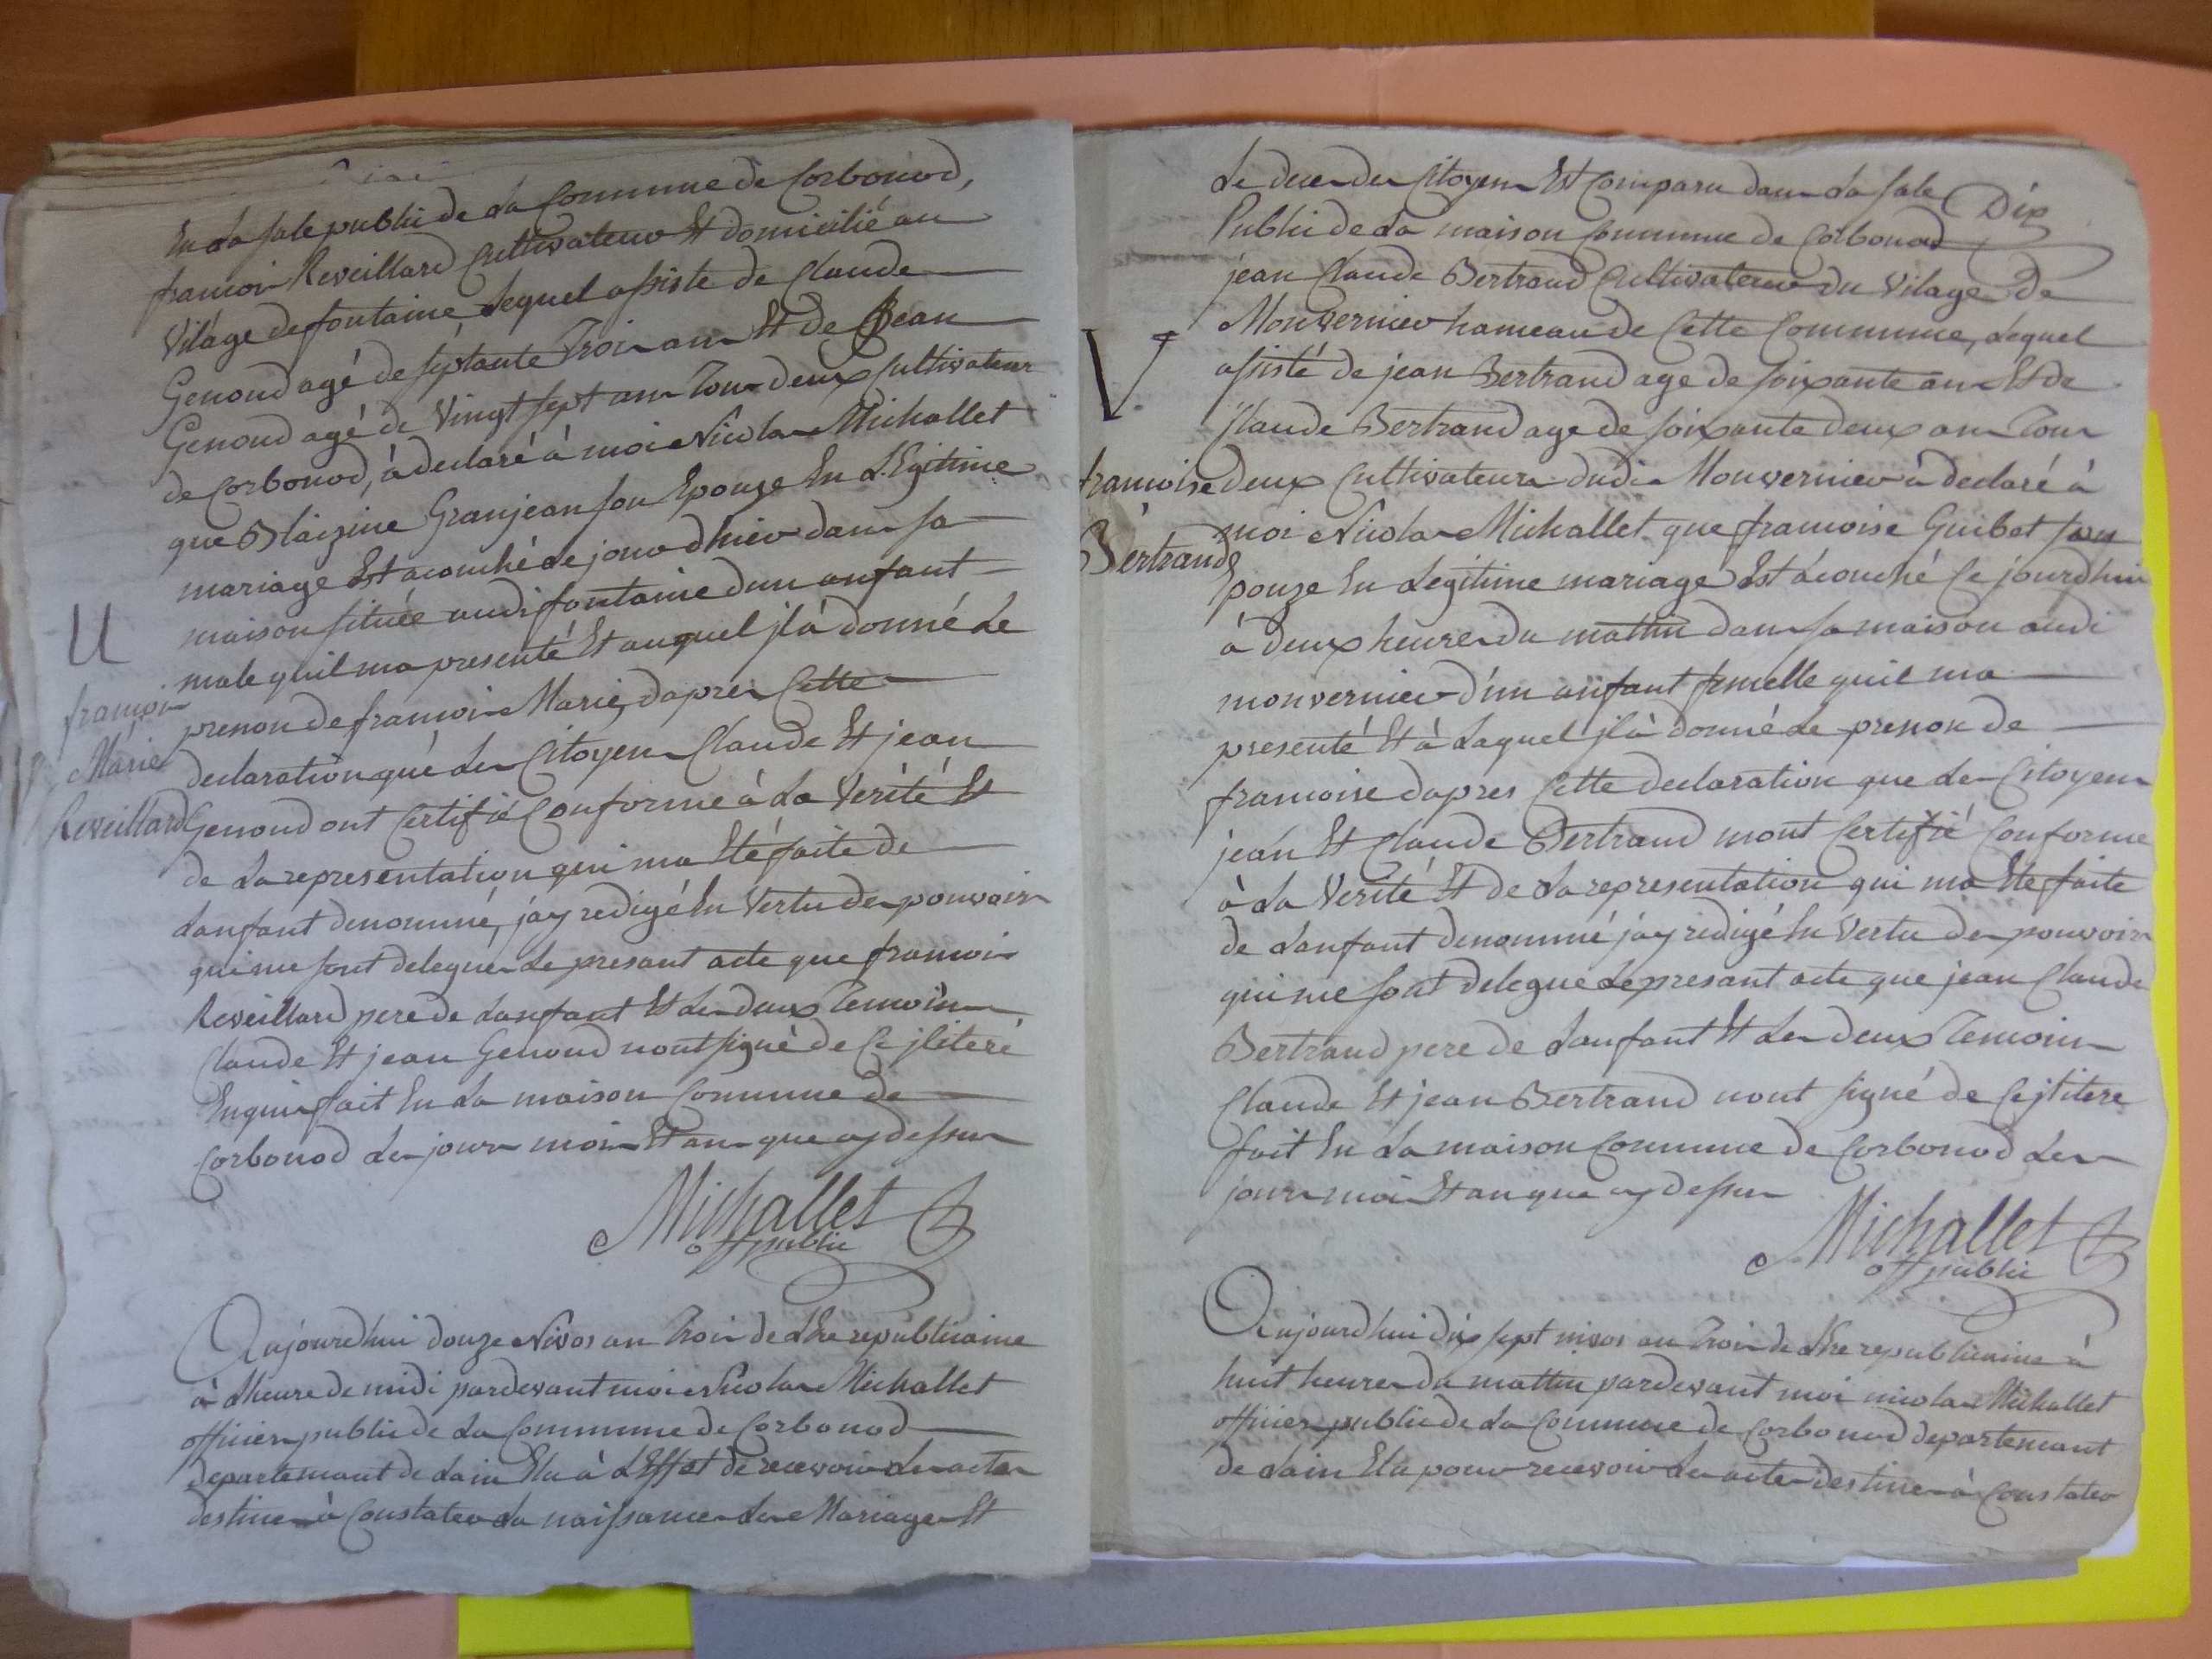 En la sale public de la Commune de Corbonod,
francois Reveillard Cultivateur Et domicilié au
Vilage de fontaine, Lequel assiste de Claude
Genoud agé de septante Trois ans Et de Jean
Genoud agé de Vingt sept ans Tous deux Cultivateurs
de Corbonod, à declaré à moi Nicolas Michallet
que Blaizine Granjean son Epouze En LEgitime
mariage Est acouché le jour dhier dans sa
maison située audi fontaine dun anfant
male quil ma presenté Et auquel jl à donné Le
prenon de francois Marie, dapres Cette
declaration que les Citoyens Claude Et jean
Genoud ont Certifié Conforme à La Verité Et
de La representation qui ma Eté faite de
Lanfant denommé, jay redigé En Vertu des pouvoirs
qui me sont delegues Le presant acte que francois
Reveillard pere de Lanfant Et Les deux Temoins
Claude Et jean Genoud nont signé de Ce jliteré
Enquis fait En La maison Commune de
Corbonod Les jours mois Et an que cy dessus
Michallet
off public
U
francois
Marie
Reveillard
Aujourdhui douze Nivos an Trois de Lhre republicaine
à Lheure de midi pardevant moi Nicolas Michallet
officier public de La Commune de Corbonod
departemant de Lain Elu à LEffet de recevoir Les actes
destines à Constater La naissances Les Mariages Et
Le deces des Citoyens Est Comparu dans La sale
Public de La maison Commune de Corbonod
Dix
jean Claude Bertrand Cultivateur du Vilage de
Monvernier hameau de Cette Commune, Lequel
assisté de jean Bertrand age de soixante ans Et de
Claude Bertrand age de soixante deux ans Tous
deux Cultivateurs dudi Monvernier à declaré à
moi Nicolas Michallet que francoise Guibet son
Epouze En Legitime mariage Est àcouché Ce jourdhui
à deux heures du mattin dans sa maison audi
monvernier d'un anfant femelle quil ma
presenté Et à Laquel jl à donné Le prenon de
francoise dapres Cette declaration que Les Citoyens
jean Et Claude Bertrand mont Certifié Conforme
à La Verité Et de La representation qui ma Ete faite
de Lanfant denommé jay redigé En Vertu des pouvoirs
qui me sont delegue Le presant acte que jean Claude
Bertrand pere de Lanfant Et Les deux Temoins
Claude Et jean Bertrand nont signé de Ce jlitere
fait En La maison Commune de Corbonod Les
jours mois Et an que cy dessus
Michallet
off public
V.
francoise
Bertrand
Aujourdhui dix sept nivos an Trois de Lhre republicaine à
huit heures du mattin pardevant moi nicolas Michallet
officier public de La Commune de Corbonod departemant
de Lain Elu pour recevoir Les actes destines à Constater